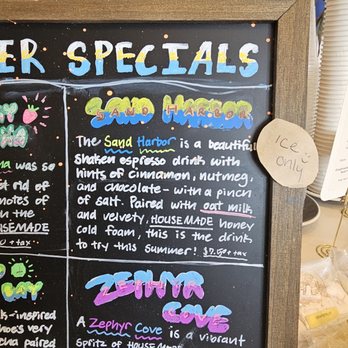 ER SPECIALS
SAND HARBOR
The Sand Harbor is a beautiful
shaken espresso drink with
hints of cinnamon, nutmeg,
and chocolate - with a pinch
of salt. Paired with oat milk
and velvety, HOUSEMADE honey
cold foam, this is the drink
to try this summer! $7.50+tax
ICE
only
was so
rid of
notes of
n the
USEMADE
+tax
AY
-inspired
oes very
cha paired
ZEPHYR
COVE
A Zephyr Cove is a vibrant
Spritz of HOUSEMADE